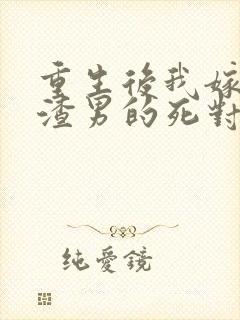 重生後我嫁
渣男的死對
純愛鏡